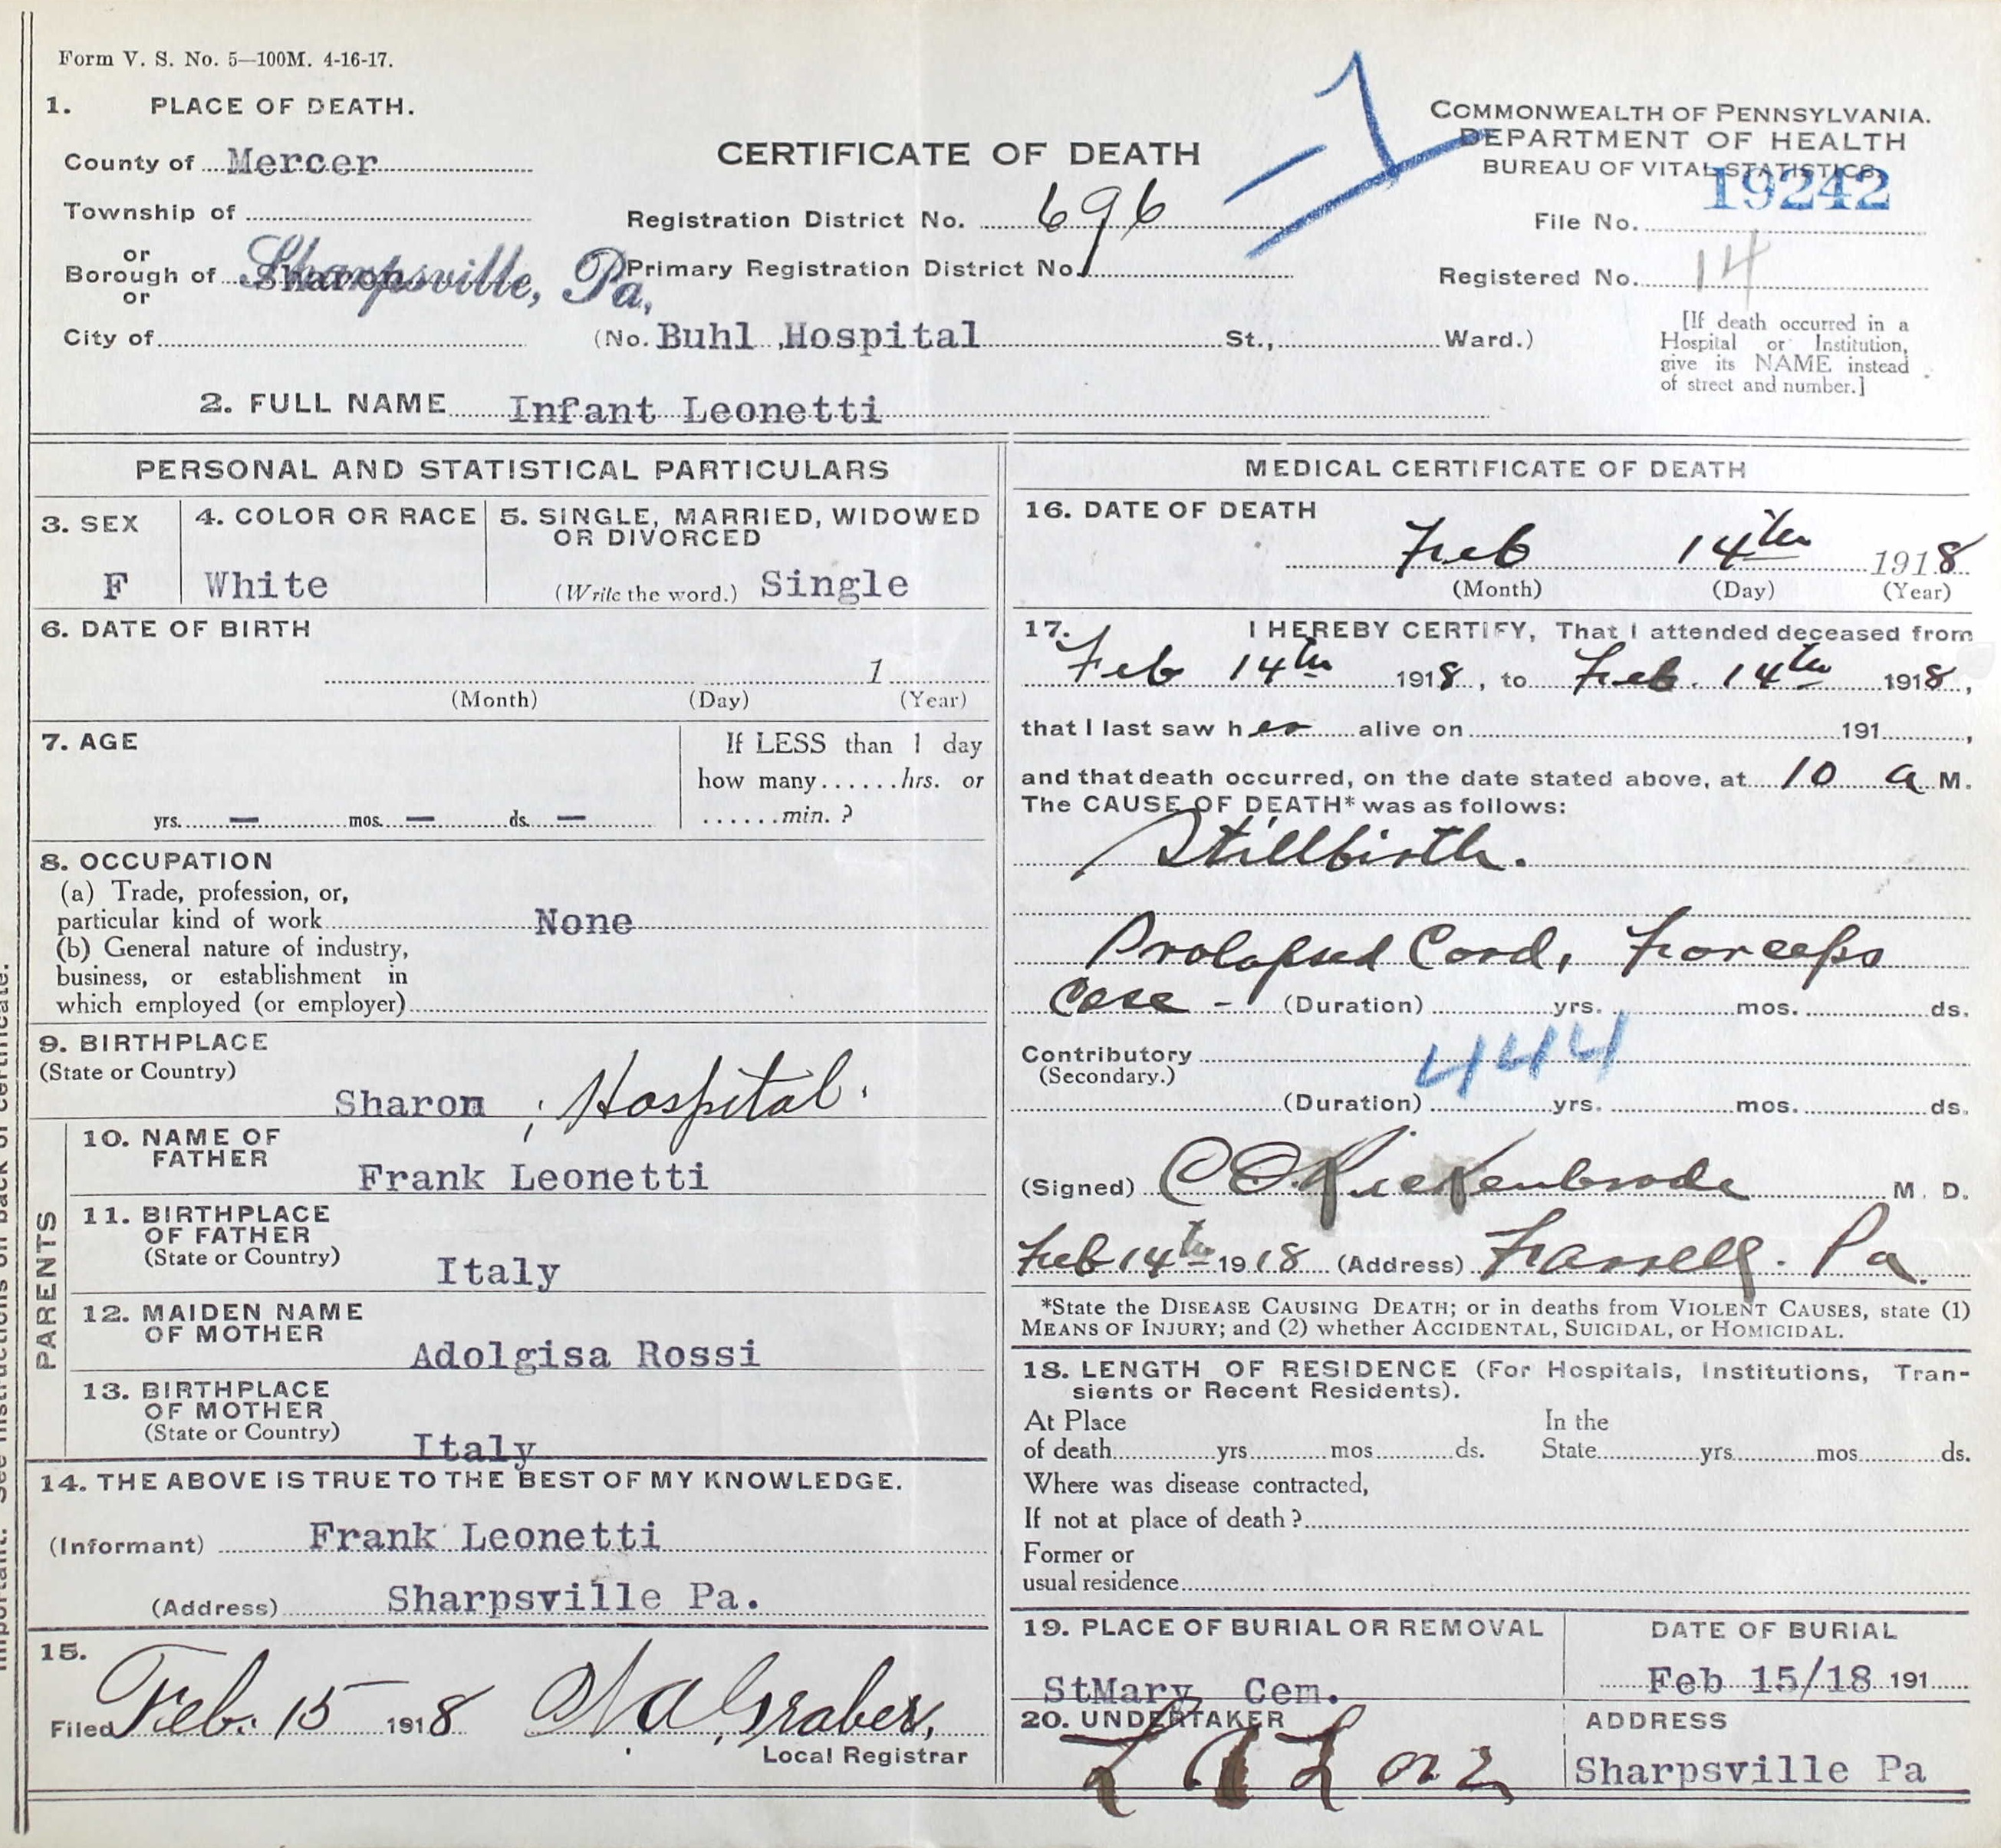 Form V. S. No. 5—100M. 4-16-17.
1. PLACE OF DEATH.
County of Mercer
Township of
or
Borough of Sharpsville, Pa,
or
City of
CERTIFICATE OF DEATH
Registration District No. 696
Primary Registration District No.
(No. Buhl Hospital St., Ward.)
COMMONWEALTH OF PENNSYLVANIA.
DEPARTMENT OF HEALTH
BUREAU OF VITAL STATISTICS.
19242
File No.
Registered No. 14
[If death occurred in a
Hospital or Institution,
give its NAME instead
of street and number.]
2. FULL NAME Infant Leonetti
PERSONAL AND STATISTICAL PARTICULARS
3. SEX
F
4. COLOR OR RACE
White
5. SINGLE, MARRIED, WIDOWED
OR DIVORCED
(Write the word.) Single
6. DATE OF BIRTH
1
(Month) (Day) (Year)
7. AGE
yrs. — mos. — ds. —
If LESS than 1 day
how many......hrs. or
......min. ?
8. OCCUPATION
(a) Trade, profession, or,
particular kind of work None
(b) General nature of industry,
business, or establishment in
which employed (or employer)
9. BIRTHPLACE
(State or Country)
Sharon, Hospital.
PARENTS
10. NAME OF
FATHER
Frank Leonetti
11. BIRTHPLACE
OF FATHER
(State or Country)
Italy
12. MAIDEN NAME
OF MOTHER
Adolgisa Rossi
13. BIRTHPLACE
OF MOTHER
(State or Country)
Italy
14. THE ABOVE IS TRUE TO THE BEST OF MY KNOWLEDGE.
(Informant) Frank Leonetti
(Address) Sharpsville Pa.
15.
Filed Feb. 15 1918 Graber,
Local Registrar
MEDICAL CERTIFICATE OF DEATH
16. DATE OF DEATH
Feb 14th 1918
(Month) (Day) (Year)
17. I HEREBY CERTIFY, That I attended deceased from
Feb 14th 1918, to Feb. 14th 1918,
that I last saw her alive on 191 ,
and that death occurred, on the date stated above, at 10 a M.
The CAUSE OF DEATH* was as follows:
Stillbirth.
Prolapsed Cord, Forceps
Case - (Duration) yrs. mos. ds.
Contributory 444
(Secondary.)
(Duration) yrs. mos. ds.
(Signed) C O Rickenbrode M. D.
Feb 14th 1918 (Address) Farrell. Pa.
*State the DISEASE CAUSING DEATH; or in deaths from VIOLENT CAUSES, state (1)
MEANS OF INJURY; and (2) whether ACCIDENTAL, SUICIDAL, or HOMICIDAL.
18. LENGTH OF RESIDENCE (For Hospitals, Institutions, Tran-
sients or Recent Residents).
At Place
of death yrs mos ds.
In the
State yrs mos ds.
Where was disease contracted,
If not at place of death ?
Former or
usual residence
19. PLACE OF BURIAL OR REMOVAL
StMary Cem.
DATE OF BURIAL
Feb 15/18 191
20. UNDERTAKER
ADDRESS
Sharpsville Pa